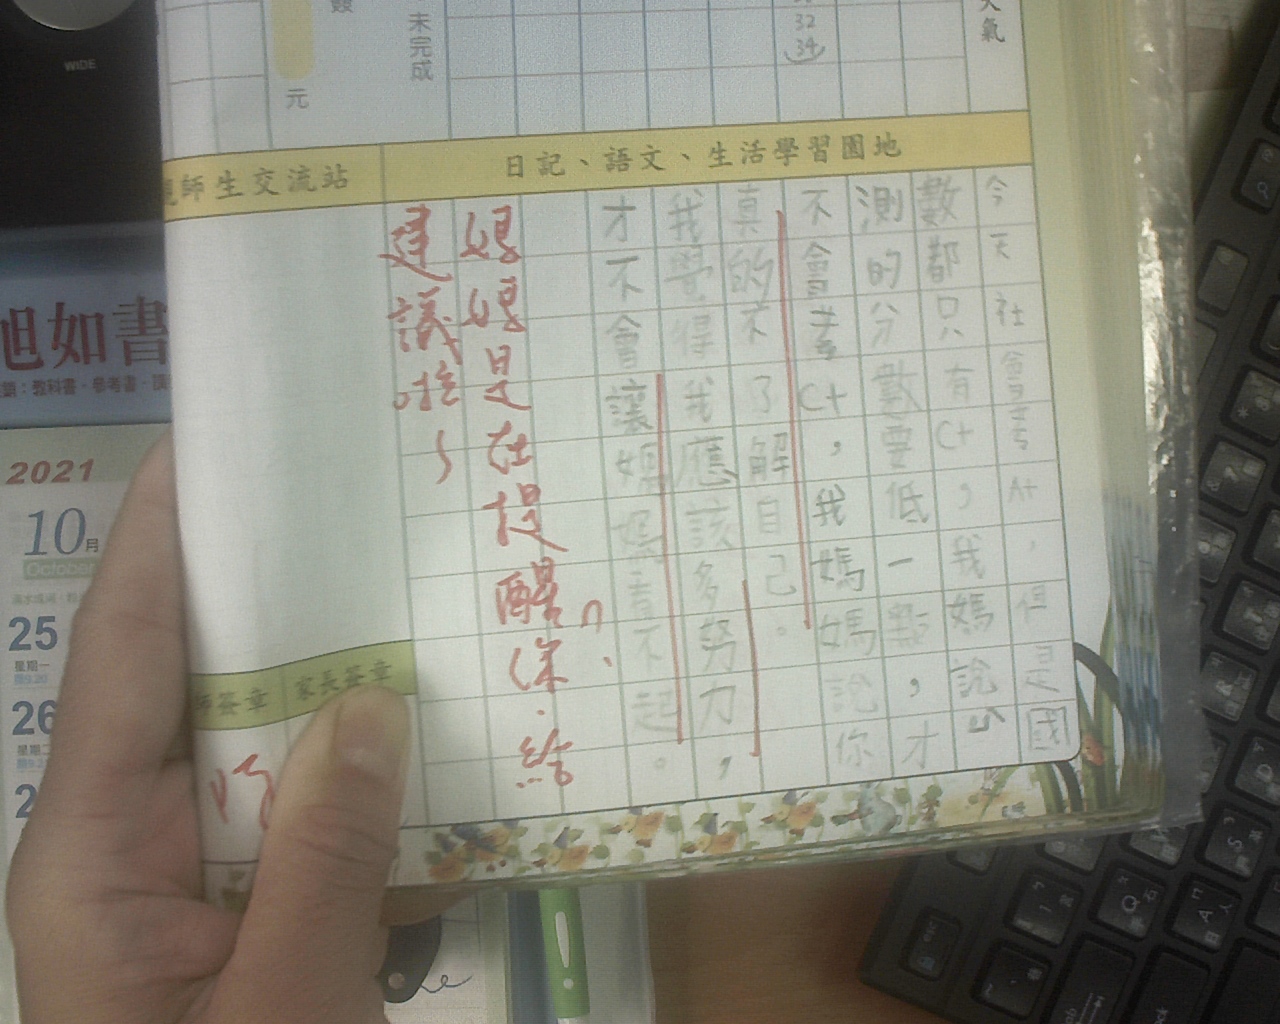 WIDE
元
未完成
32
34
天氣
師生交流站
日記、語文、生活學習園地
今天社會考A+，但是國
數都只有C+，我媽說
測的分數要低一點，才
不會考C+，我媽媽說你
真的不了解自己。
我覺得我應該多努力，
才不會讓媽媽看不起。
媽媽是在提醒你、給
建議啦~
師簽章
家長簽章
旭如書
教科書‧參考書‧
2021
10月
October
25
星期一
26
星期二
2